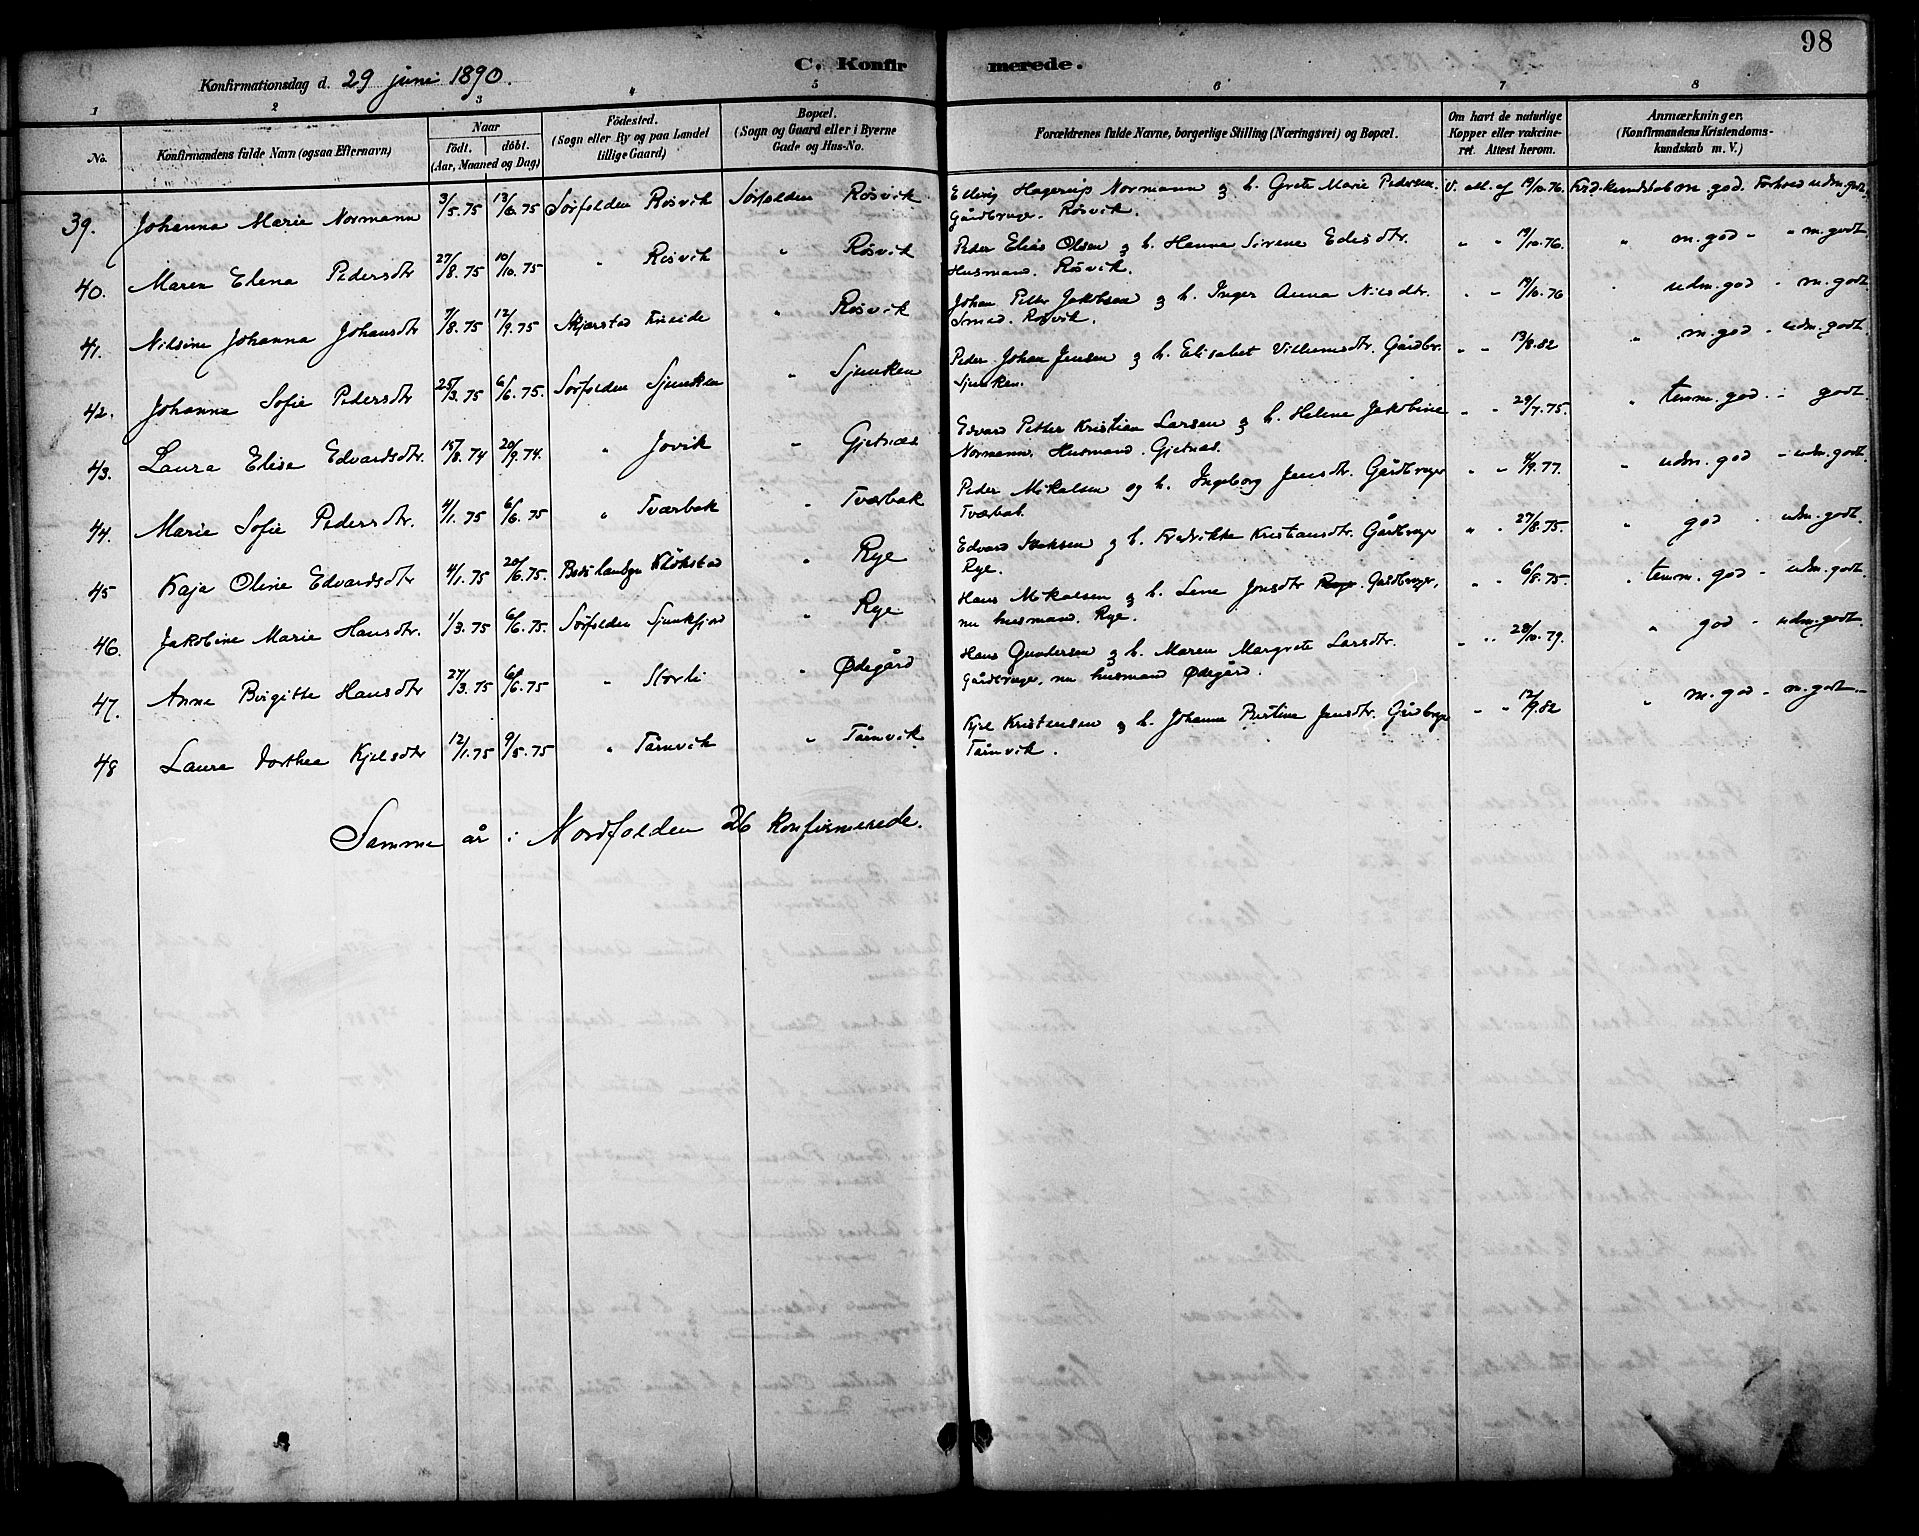 98
Konfirmationsdag d. 29 juni 1890.
C. Konfir merede.
1 2 3 4 5 6 7 8
No.
Konfirmandens fulde Navn (ogsaa Efternavn)
Naar
født. døbt.
(Aar, Maaned og Dag)
Fødested.
(Sogn eller By og paa Landet
tillige Gaard)
Bopæl.
(Sogn og Gaard eller i Byerne
Gade og Hus-No.
Forældrenes fulde Navne, borgerlige Stilling (Næringsvei) og Bopæl.
Om havt de naturlige
Kopper eller vakcine-
ret. Attest herom.
Anmærkninger.
(Konfirmandens Kristendoms-
kundskab m. V.)
39. Johanna Marie Normann 3/5.75 13/6.75 Sørfolden Røsvik Sørfolden Røsvik Edling Hagerup Normann & h. Grete Marie Pedersen. V. att. af 19/10.76. Krd.kundskab m. god. Forhold udm. godt.
Gårdbruger. Røsvik.
40. Maren Elena Pedersdtr 27/8.75 10/10.75 " Røsvik " Røsvik Peder Elias Olsen & h. Hanna Sirene Edisdtr. " " 19/10.76. " m. god - " m. godt
Husmand. Røsvik.
41. Nilsine Johanna Johansdtr 7/8.75 12/9.75 Skjerstad " Røsvik Johan Petter Jakobsen & h. Inger Anna Nilsdtr. " " 19/10.76 " udm. god - m. godt
Smed. Røsvik.
42. Johanna Sofie Pedersdtr 25/3.75 6/6.75. Sørfolden Sjunken " Sjunken Peder Johan Jensen & h. Elisabet Villumsdtr. Gårdbr. " " 13/8.82 " m. god - udm. godt.
Sjunken.
43. Laura Elise Edvardsdtr. 15/8.74 20/9.74. " Jovik " Gjetnæs Edvard Petter Kristian Larsen & h. Helene Jakobine " " 29/7.75. " temm. god - godt
Normann. Husmand. Gjetnæs.
44. Marie Sofie Pedersdtr. 4/1.75 6/6.75 " Tværbak " Tværbak Peder Mikalsen og h. Ingeborg Jensdtr. Gårdbruger " " 4/9.77. " udm. god - udm. godt.
Tværbak.
45 Kaja Oline Edvardsdtr 4/1.75 20/6.75. Bodø landsogn Kløkstad " Rye Edvard Isaksen & h. Fredrikke Kristiansdtr. Gårdbruger " " 27/8.75. " god - udm. godt.
Rye.
46. Jakobine Marie Hansdtr. 1/3.75 6/6.75. Sørfolden Sjunkfjord " Rye Hans Mikalsen & h. Lene Jonsdtr Gårdbruger, " " 6/8.75- " temm. god - udm. godt.
nu husmand. Rye.
47. Anne Birgitte Hansdtr 27/3.75 6/6.75 " Storli " Ødegård Hans Gundersen & h. Maren Margrete Larsdtr. " " 28/10.79. " god - udm. godt.
Gårdbruger, nu husmand Ødegård.
48 Laura Dorthea Kjelsdtr 12/1.75 9/5.75 " Tårnvik " Tårnvik Kjel Kristensen & h. Johanna Justine Jensdtr. Gårdbruger " " 12/9.82 " m. god - m. godt.
Tårnvik.
Samme år i Nordfolden 26 konfirmerede.